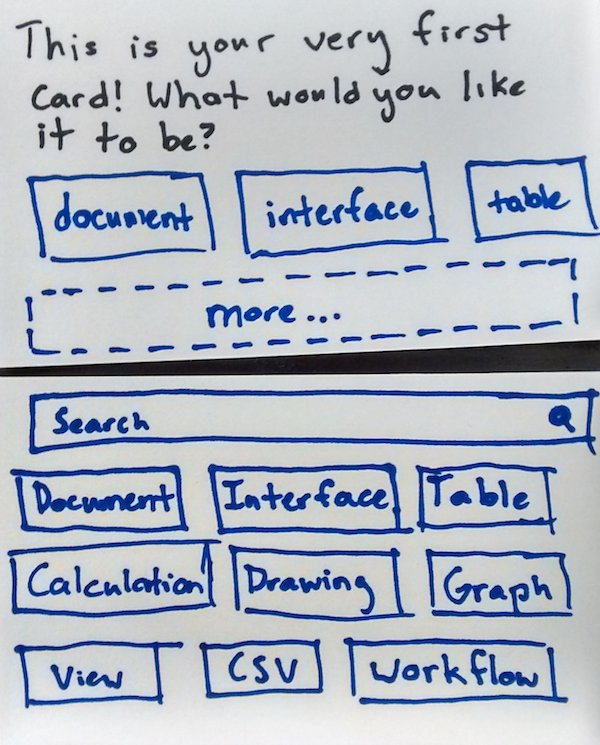 This is your very first
Card! What would you like
it to be?
document interface table
more...
Search
Document Interface Table
Calculation Drawing Graph
View CSV Workflow